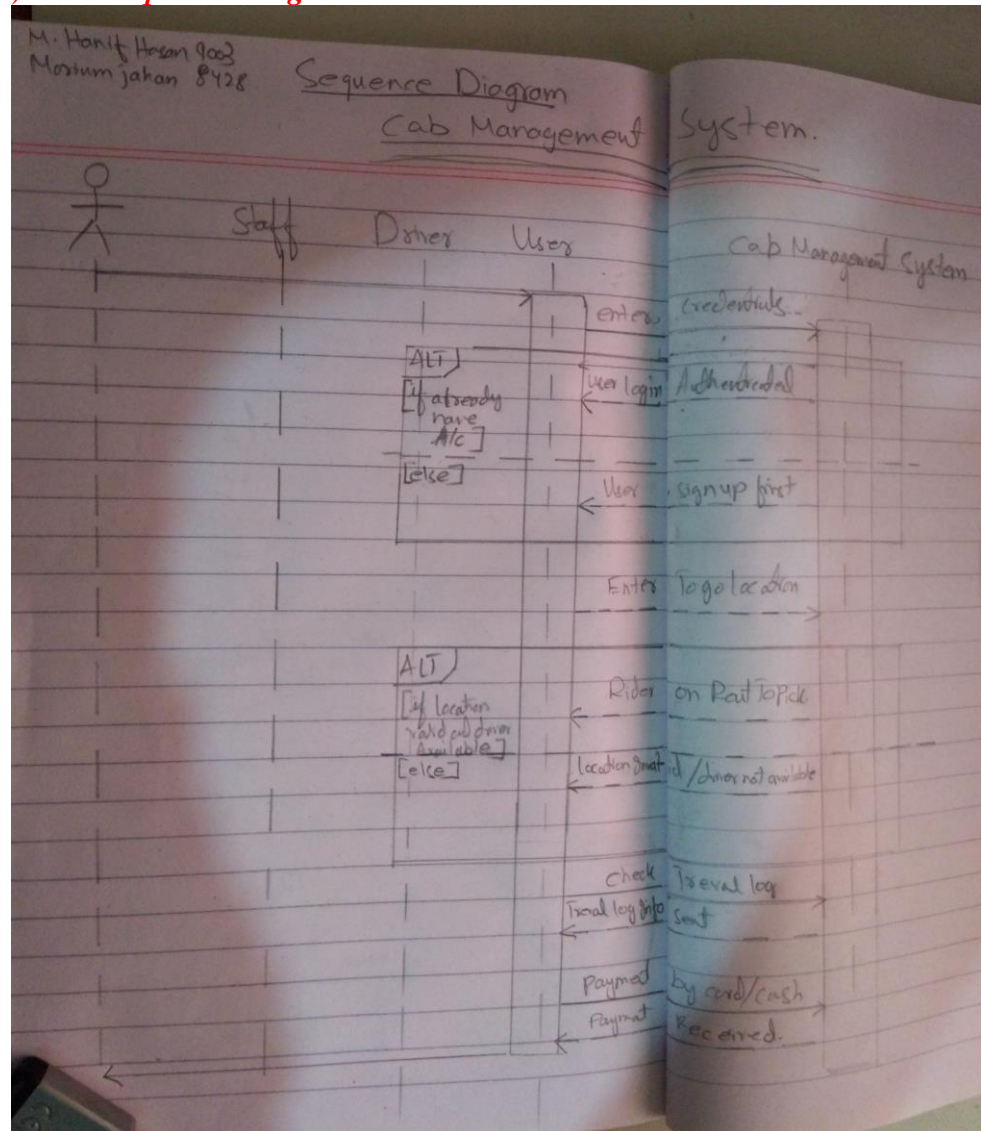 M. Hanif Hasan 9003
Morium jahan 8428
Sequence Diagram
Cab Management System.
Staff
Driver
User
Cab Management System
enter credentials
ALT
[if already
have
A/c]
User login Authenticated
[else]
User signup first
Enter To go location
ALT
[if location
valid and driver
Available]
Rider on
[else]
location / driver not available
check Treval log
Treval log Info sent
Payment by card/cash
Payment Received.